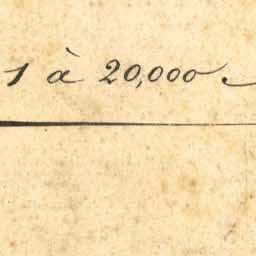 1 à 20,000